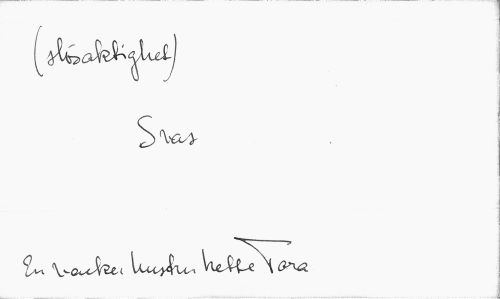 (slösaktighet)
Svas
En vacker hustru hette Tora